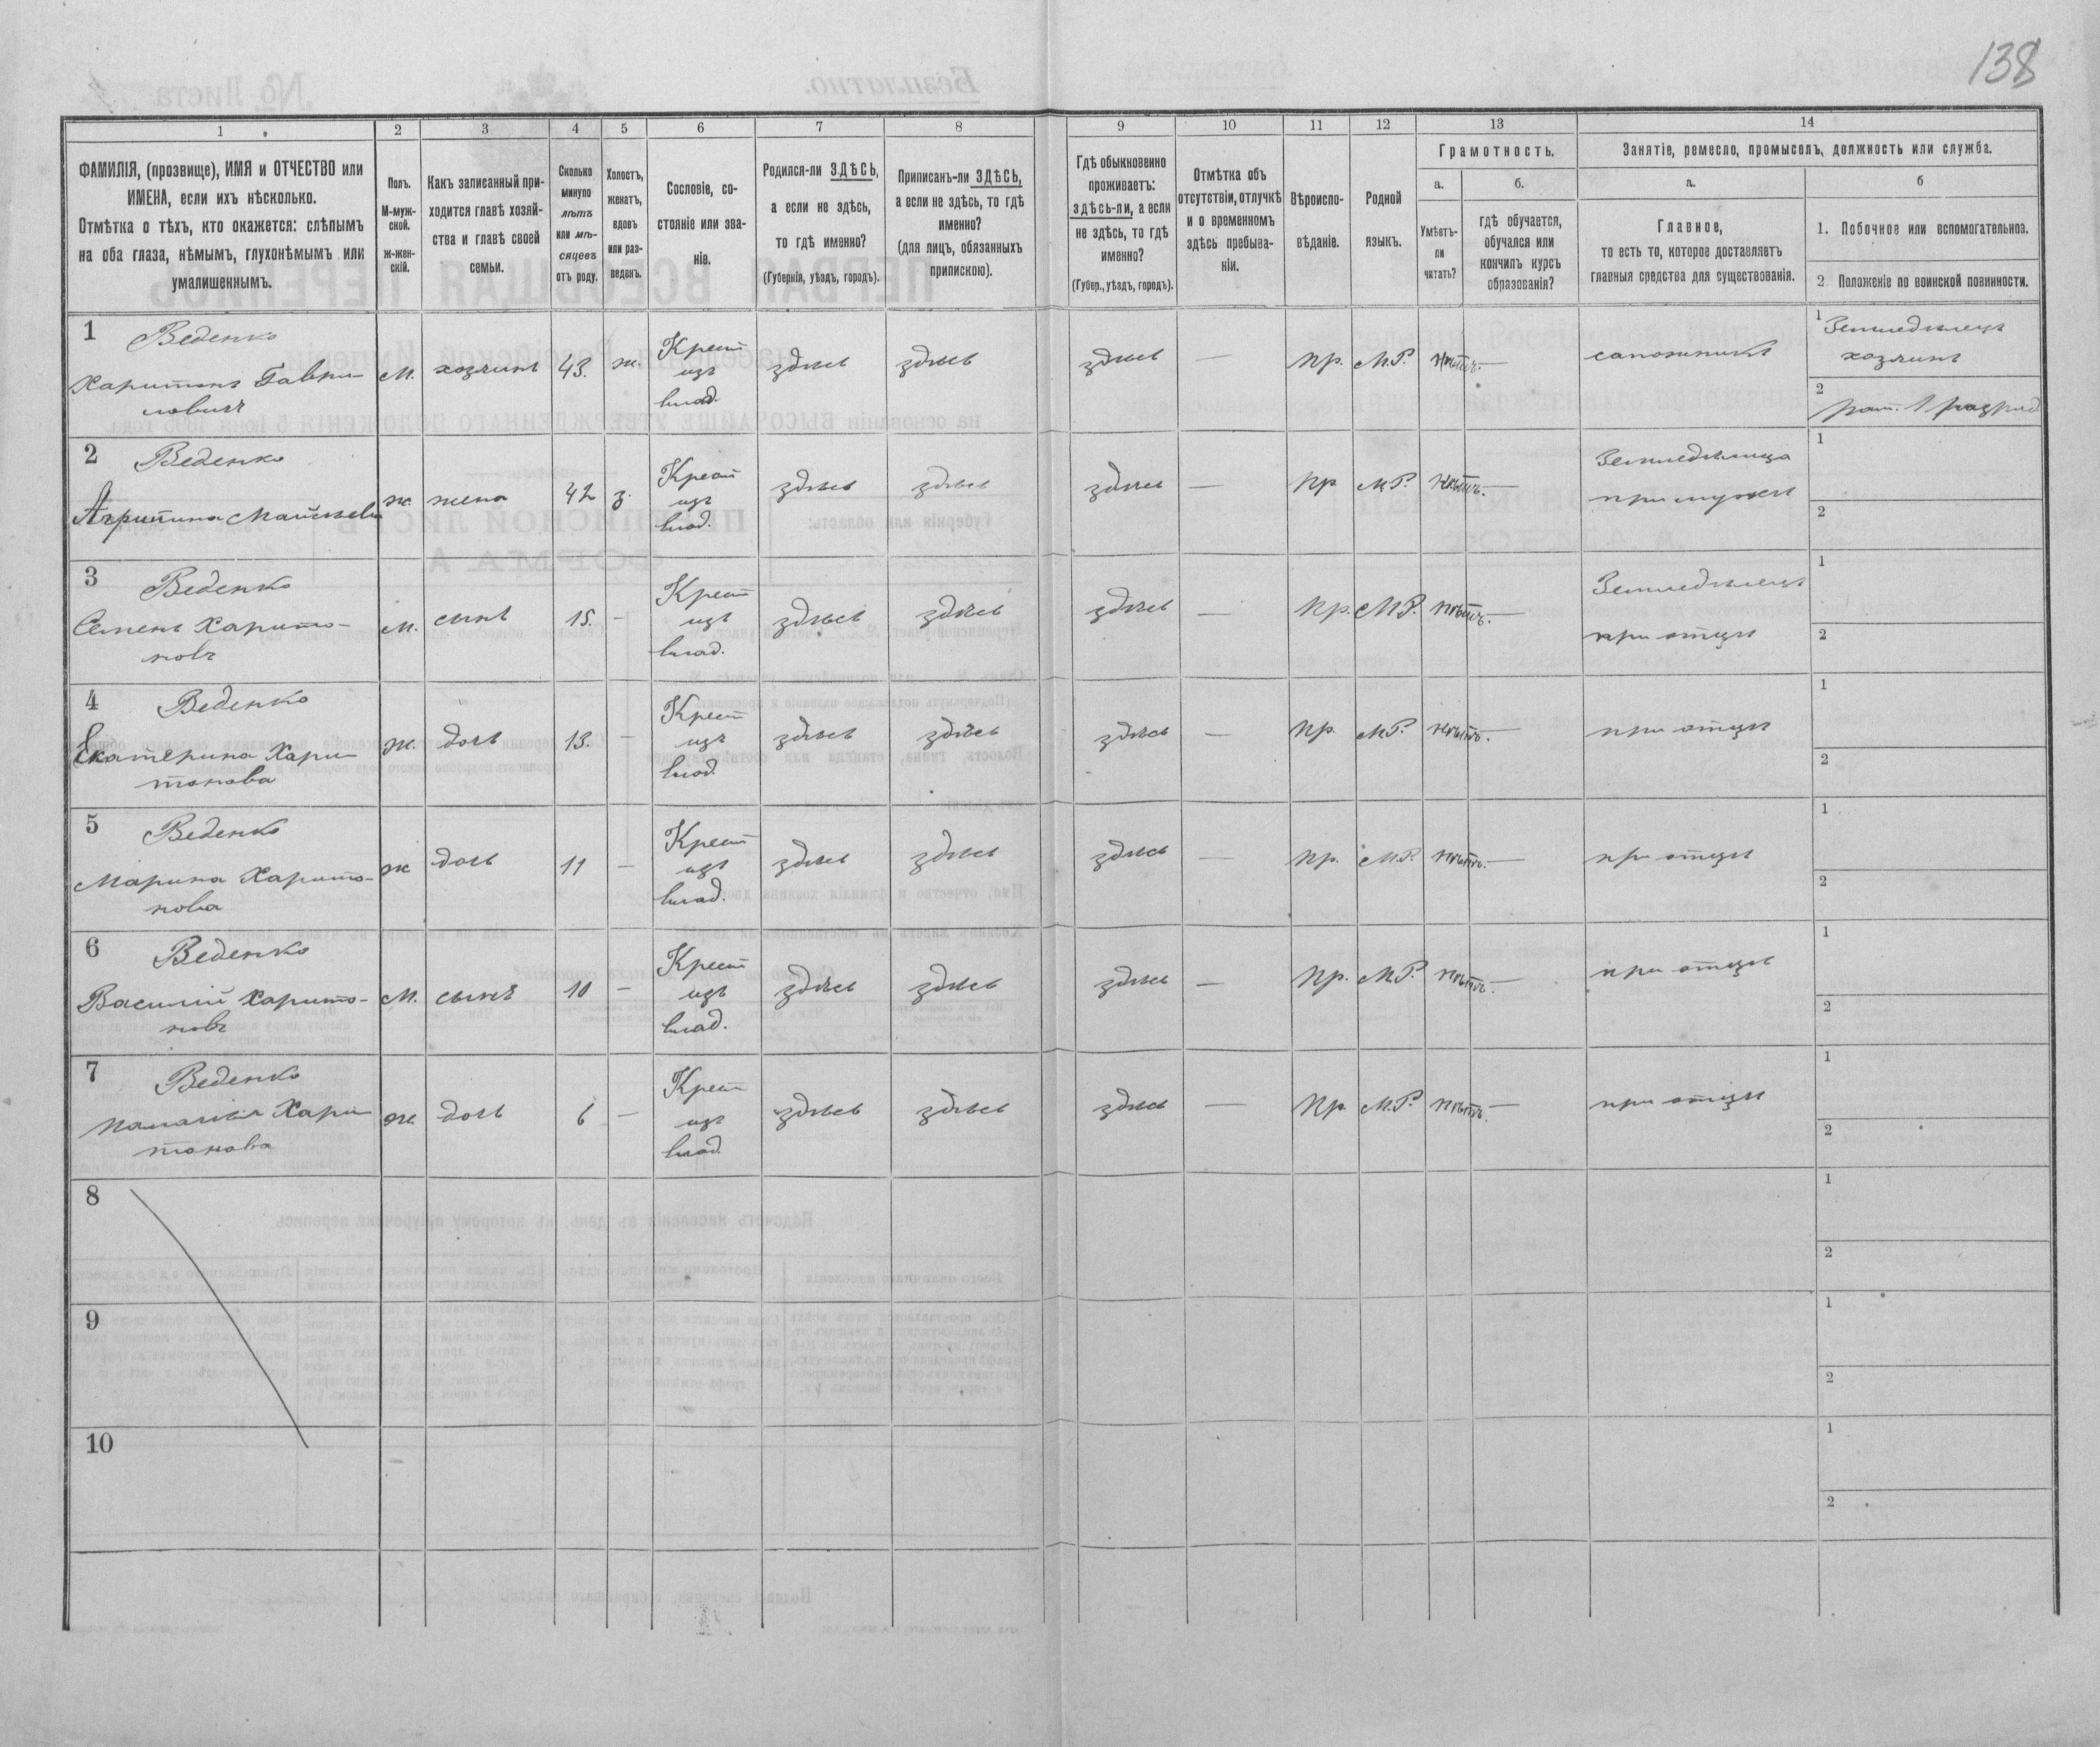 138
1 2 3 4 5 6 7 8 9 10 11 12 13 14
ФАМИЛІЯ, (прозвище), ИМЯ и ОТЧЕСТВО или
ИМЕНА, если ихъ нѣсколько.
Отмѣтка о тѣхъ, кто окажется: слѣпымъ
на оба глаза, нѣмымъ, глухонѣмымъ или
умалишеннымъ.
Полъ.
М-муж-
ской.
ж-жен-
скій.
Какъ записанный при-
ходится главѣ хозяй-
ства и главѣ своей
семьи.
Сколько
минуло
лѣтъ
или мѣ-
сяцевъ
отъ роду.
Холостъ,
женатъ,
вдовъ
или раз-
веденъ.
Сословіе, со-
стояніе или зва-
ніе.
Родился-ли ЗДѢСЬ,
а если не здѣсь,
то гдѣ именно?
(Губернія, уѣздъ, городъ).
Приписанъ-ли ЗДѢСЬ,
а если не здѣсь, то гдѣ
именно?
(для лицъ, обязанныхъ
припискою).
Гдѣ обыкновенно
проживаетъ:
здѣсь-ли, а если
не здѣсь, то гдѣ
именно?
(Губер., уѣздъ, городъ).
Отмѣтка объ
отсутствіи, отлучкѣ
и о временномъ
здѣсь пребыва-
ніи.
Вѣроиспо-
вѣданіе.
Родной
языкъ.
Грамотность.
а.
Умѣетъ-
ли
читать?
б.
гдѣ обучается,
обучался или
кончилъ курсъ
образованія?
Занятіе, ремесло, промыселъ, должность или служба.
а.
Главное,
то есть то, которое доставляетъ
главныя средства для существованія.
б
1. Побочное или вспомогательное.
2 Положеніе по воинской повинности.
1 Веденко
Харитонъ Гаври-
ловичъ
м. хозяинъ 43. ж.
Крест
изъ
влад.
здѣсь здѣсь здѣсь — пр. М.Р. нѣтъ. —
сапожникъ
1 Земледѣлецъ
хозяинъ
2 рат. 1 разряд
2 Веденко
Агрипина Матвѣева
ж. жена 42 з.
Крест
изъ
влад.
здѣсь здѣсь здѣсь — пр М.Р. нѣтъ. —
Земледѣлица
при мужѣ
1
2
3 Веденко
Семенъ Харито-
новъ
м. сынъ 15. —
Крест
изъ
влад.
здѣсь здѣсь здѣсь — пр. М.Р. нѣтъ. —
Земледѣлецъ
при отцѣ
1
2
4 Веденко
Екатерина Хари-
тонова
ж. дочь 13. —
Крест
изъ
влад
здѣсь здѣсь здѣсь — пр. М.Р. нѣтъ. —
при отцѣ
1
2
5 Веденко
Марина Харито-
нова
ж дочь 11 —
Крест
изъ
влад.
здѣсь здѣсь здѣсь — пр. М.Р. нѣтъ. —
при отцѣ
1
2
6 Веденко
Василій Харито-
новъ
м. сынъ 10 —
Крест
изъ
влад.
здѣсь здѣсь здѣсь — пр. М.Р. нѣтъ. —
при отцѣ
1
2
7 Веденко
Хари-
тонова
ж. дочь 6 —
Крест
изъ
влад
здѣсь здѣсь здѣсь — пр. М.Р. нѣтъ. —
при отцѣ
1
2
8
1
2
9
1
2
10
1
2